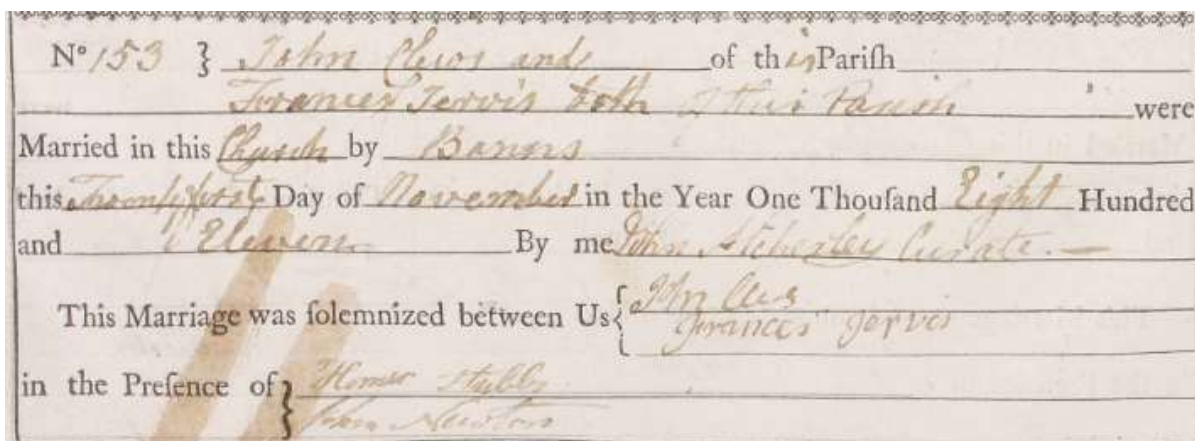 Nº 153 } John Clews and of this Pariſh
Frances Jervis both of this Parish were
Married in this Church by Banns
this Twenty first Day of November in the Year One Thouſand Eight Hundred
and Eleven By me John Atcherley Curate.
This Marriage was ſolemnized between Us { Jhn Clews
Frances Jervis
in the Preſence of } Thomas Stubbs
John Newton